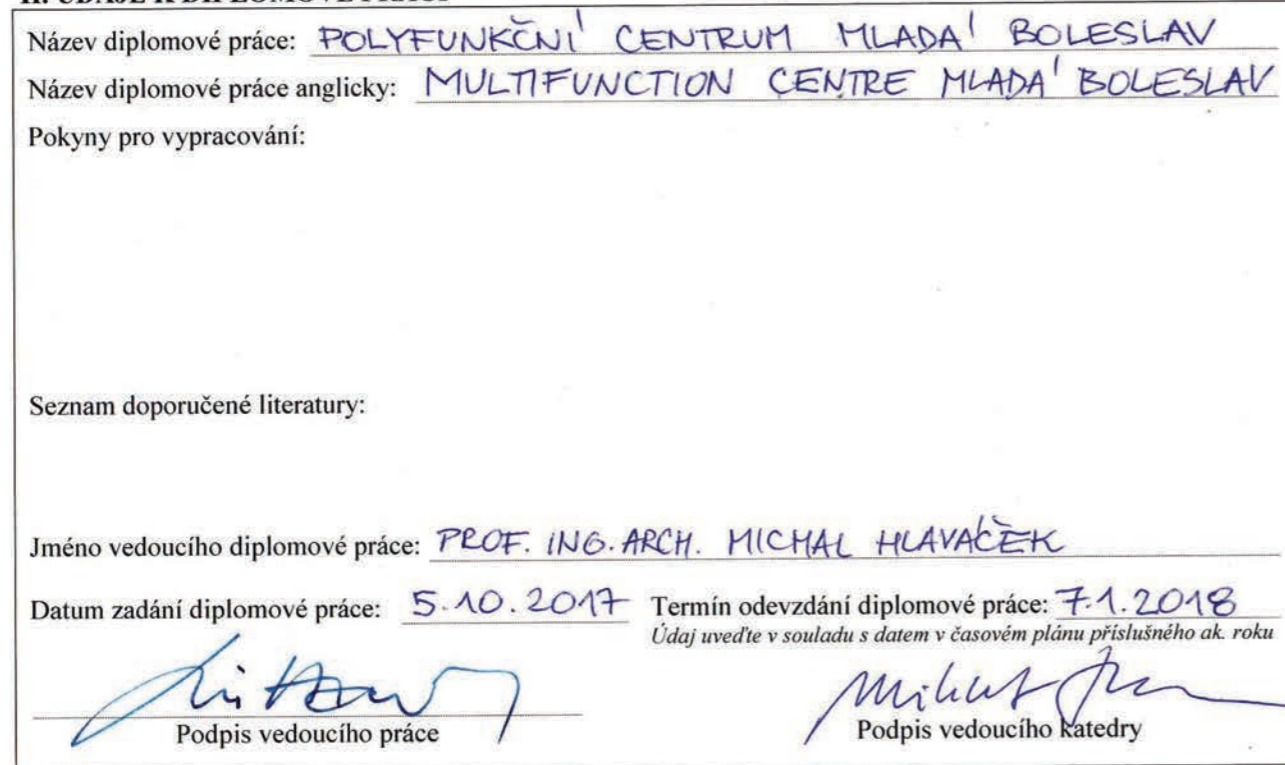 II. ÚDAJE K DIPLOMOVÉ PRÁCI
Název diplomové práce: POLYFUNKČNÍ CENTRUM MLADÁ BOLESLAV
Název diplomové práce anglicky: MULTIFUNCTION CENTRE MLADÁ BOLESLAV
Pokyny pro vypracování:
Seznam doporučené literatury:
Jméno vedoucího diplomové práce: PROF. ING. ARCH. MICHAL HLAVÁČEK
Datum zadání diplomové práce: 5.10.2017 Termín odevzdání diplomové práce: 7.1.2018
Údaj uveďte v souladu s datem v časovém plánu příslušného ak. roku
Podpis vedoucího práce Podpis vedoucího katedry